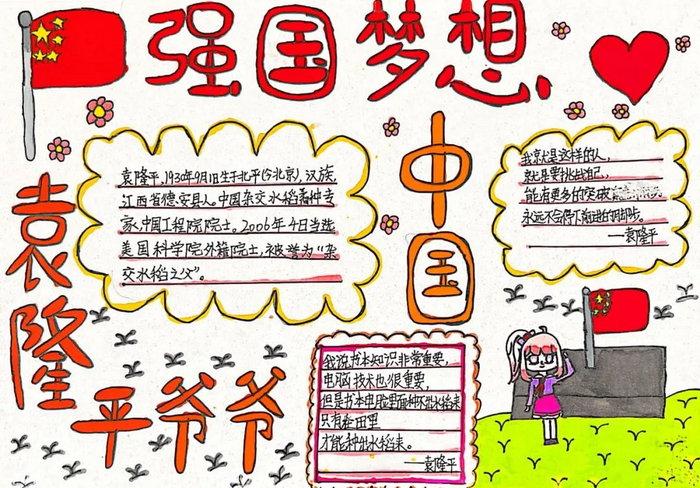 强国梦想
中国
袁隆平爷爷
袁隆平,1930年9月1日生于北平(今北京),汉族,
江西省德安县人。中国杂交水稻育种专
家,中国工程院院士。2006年4日当选
美国科学院外籍院士,被誉为“杂
交水稻之父”。
我就是这样的人,
就是要挑战自己,
能有更多的突破
永远不会停下前进的脚步。
——袁隆平
我说书本知识非常重要,
电脑技术也很重要,
但是书本电脑里面种不出水稻来
只有在田里
才能种出水稻来。
——袁隆平